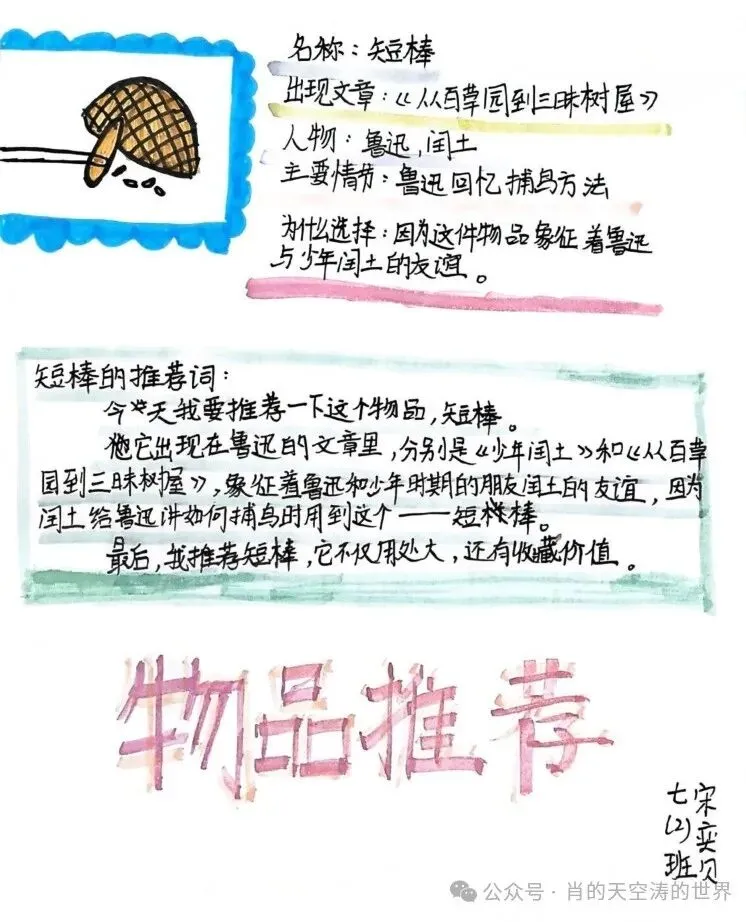 名称：短棒
出现文章：《从百草园到三昧树屋》
人物：鲁迅，闰土
主要情节：鲁迅回忆捕鸟方法
为什么选择：因为这件物品象征着鲁迅
与少年闰土的友谊。
短棒的推荐词：
今天我要推荐一下这个物品，短棒。
它出现在鲁迅的文章里，分别是《少年闰土》和《从百草
园到三昧树屋》，象征着鲁迅和少年时期的朋友闰土的友谊，因为
闰土给鲁迅讲如何捕鸟时用到这个——短棒。
最后，我推荐短棒，它不仅用处大，还有收藏价值。
物品推荐
七(2)班
宋奕贝
公众号·肖的天空涛的世界